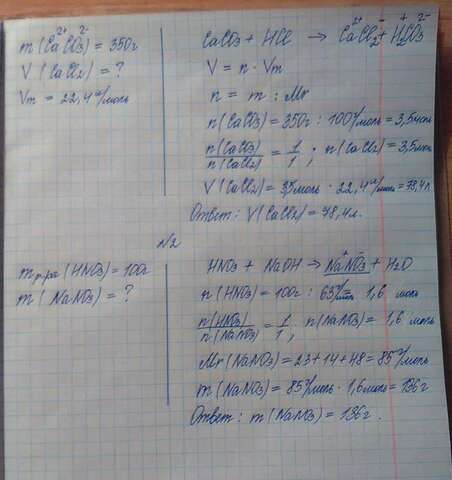 m (CaCO3) = 350г
2+ 2-
V (CaCl2) = ?
Vm = 22,4 л/моль
CaCO3 + HCl → CaCl2 + H2CO3
2+ - + 2-
V = n · Vm
n = m : Mr
n (CaCO3) = 350г : 100г/моль = 3,5моль
n(CaCO3)/n(CaCl2) = 1/1 ; n(CaCl2) = 3,5моль
V (CaCl2) = 3,5моль · 22,4 л/моль = 78,4л.
Ответ: V(CaCl2) = 78,4л.
N2
m р-ра (HNO3) = 100г
m (NaNO3) = ?
HNO3 + NaOH → NaNO3 + H2O
+ -
n (HNO3) = 100г : 63г/моль = 1,6 моль
n(HNO3)/n(NaNO3) = 1/1 , n(NaNO3) = 1,6 моль
Mr (NaNO3) = 23+14+48 = 85г/моль
m (NaNO3) = 85г/моль · 1,6моль = 136г
Ответ: m (NaNO3) = 136г.